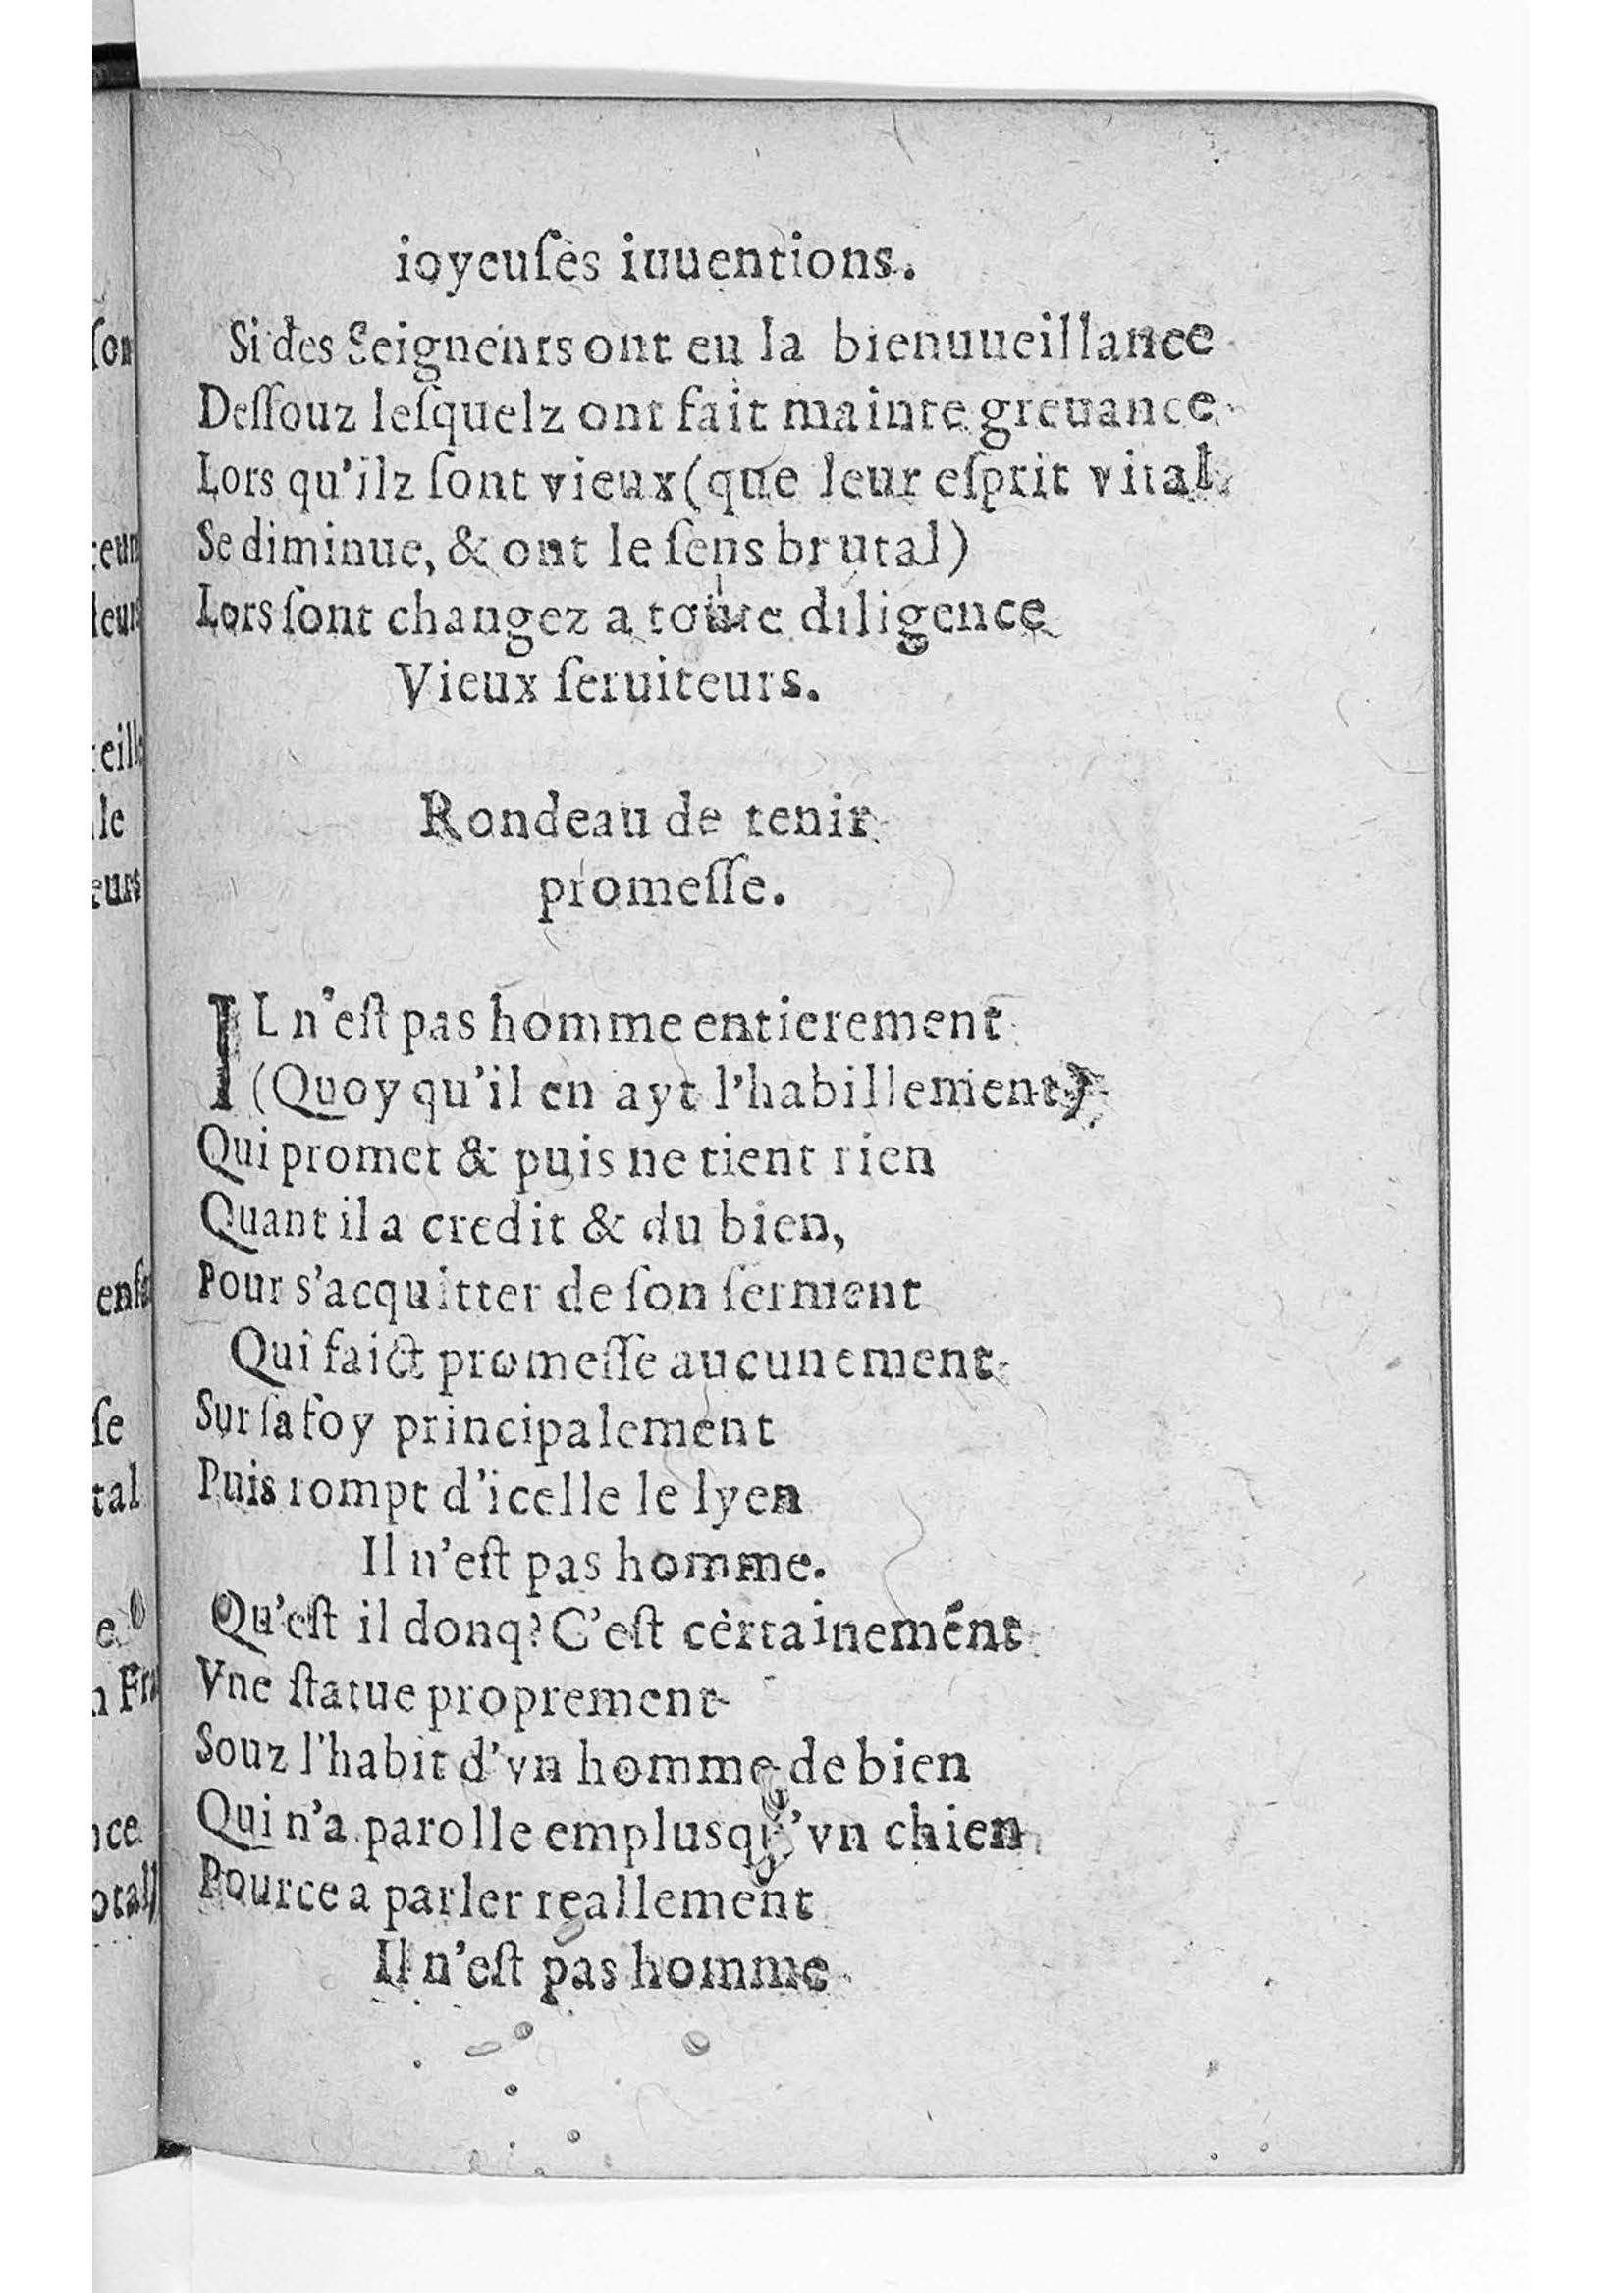 ioyeuſes inuentions.
Si des Seigneurs ont eu la bienuueillance
Deſſouz leſquelz ont fait mainte greuance
Lors qu'ilz ſont vieux (que leur eſprit vital
Se diminue, & ont le ſens brutal)
Lors ſont changez a toute diligence
Vieux ſeruiteurs.
Rondeau de tenir
promeſſe.
IL n'eſt pas homme entierement
(Quoy qu'il en ayt l'habillement)
Qui promet & puis ne tient rien
Quant il a credit & du bien,
Pour s'acquitter de ſon ſerment
Qui faict promeſſe aucunement
Sur ſa foy principalement
Puis rompt d'icelle le lyen
Il n'eſt pas homme.
Qu'eſt il donq? C'eſt certainement
Vne ſtatue proprement
Souz l'habit d'vn homme de bien
Qui n'a parolle emplus qu'vn chien
Pource a parler reallement
Il n'eſt pas homme